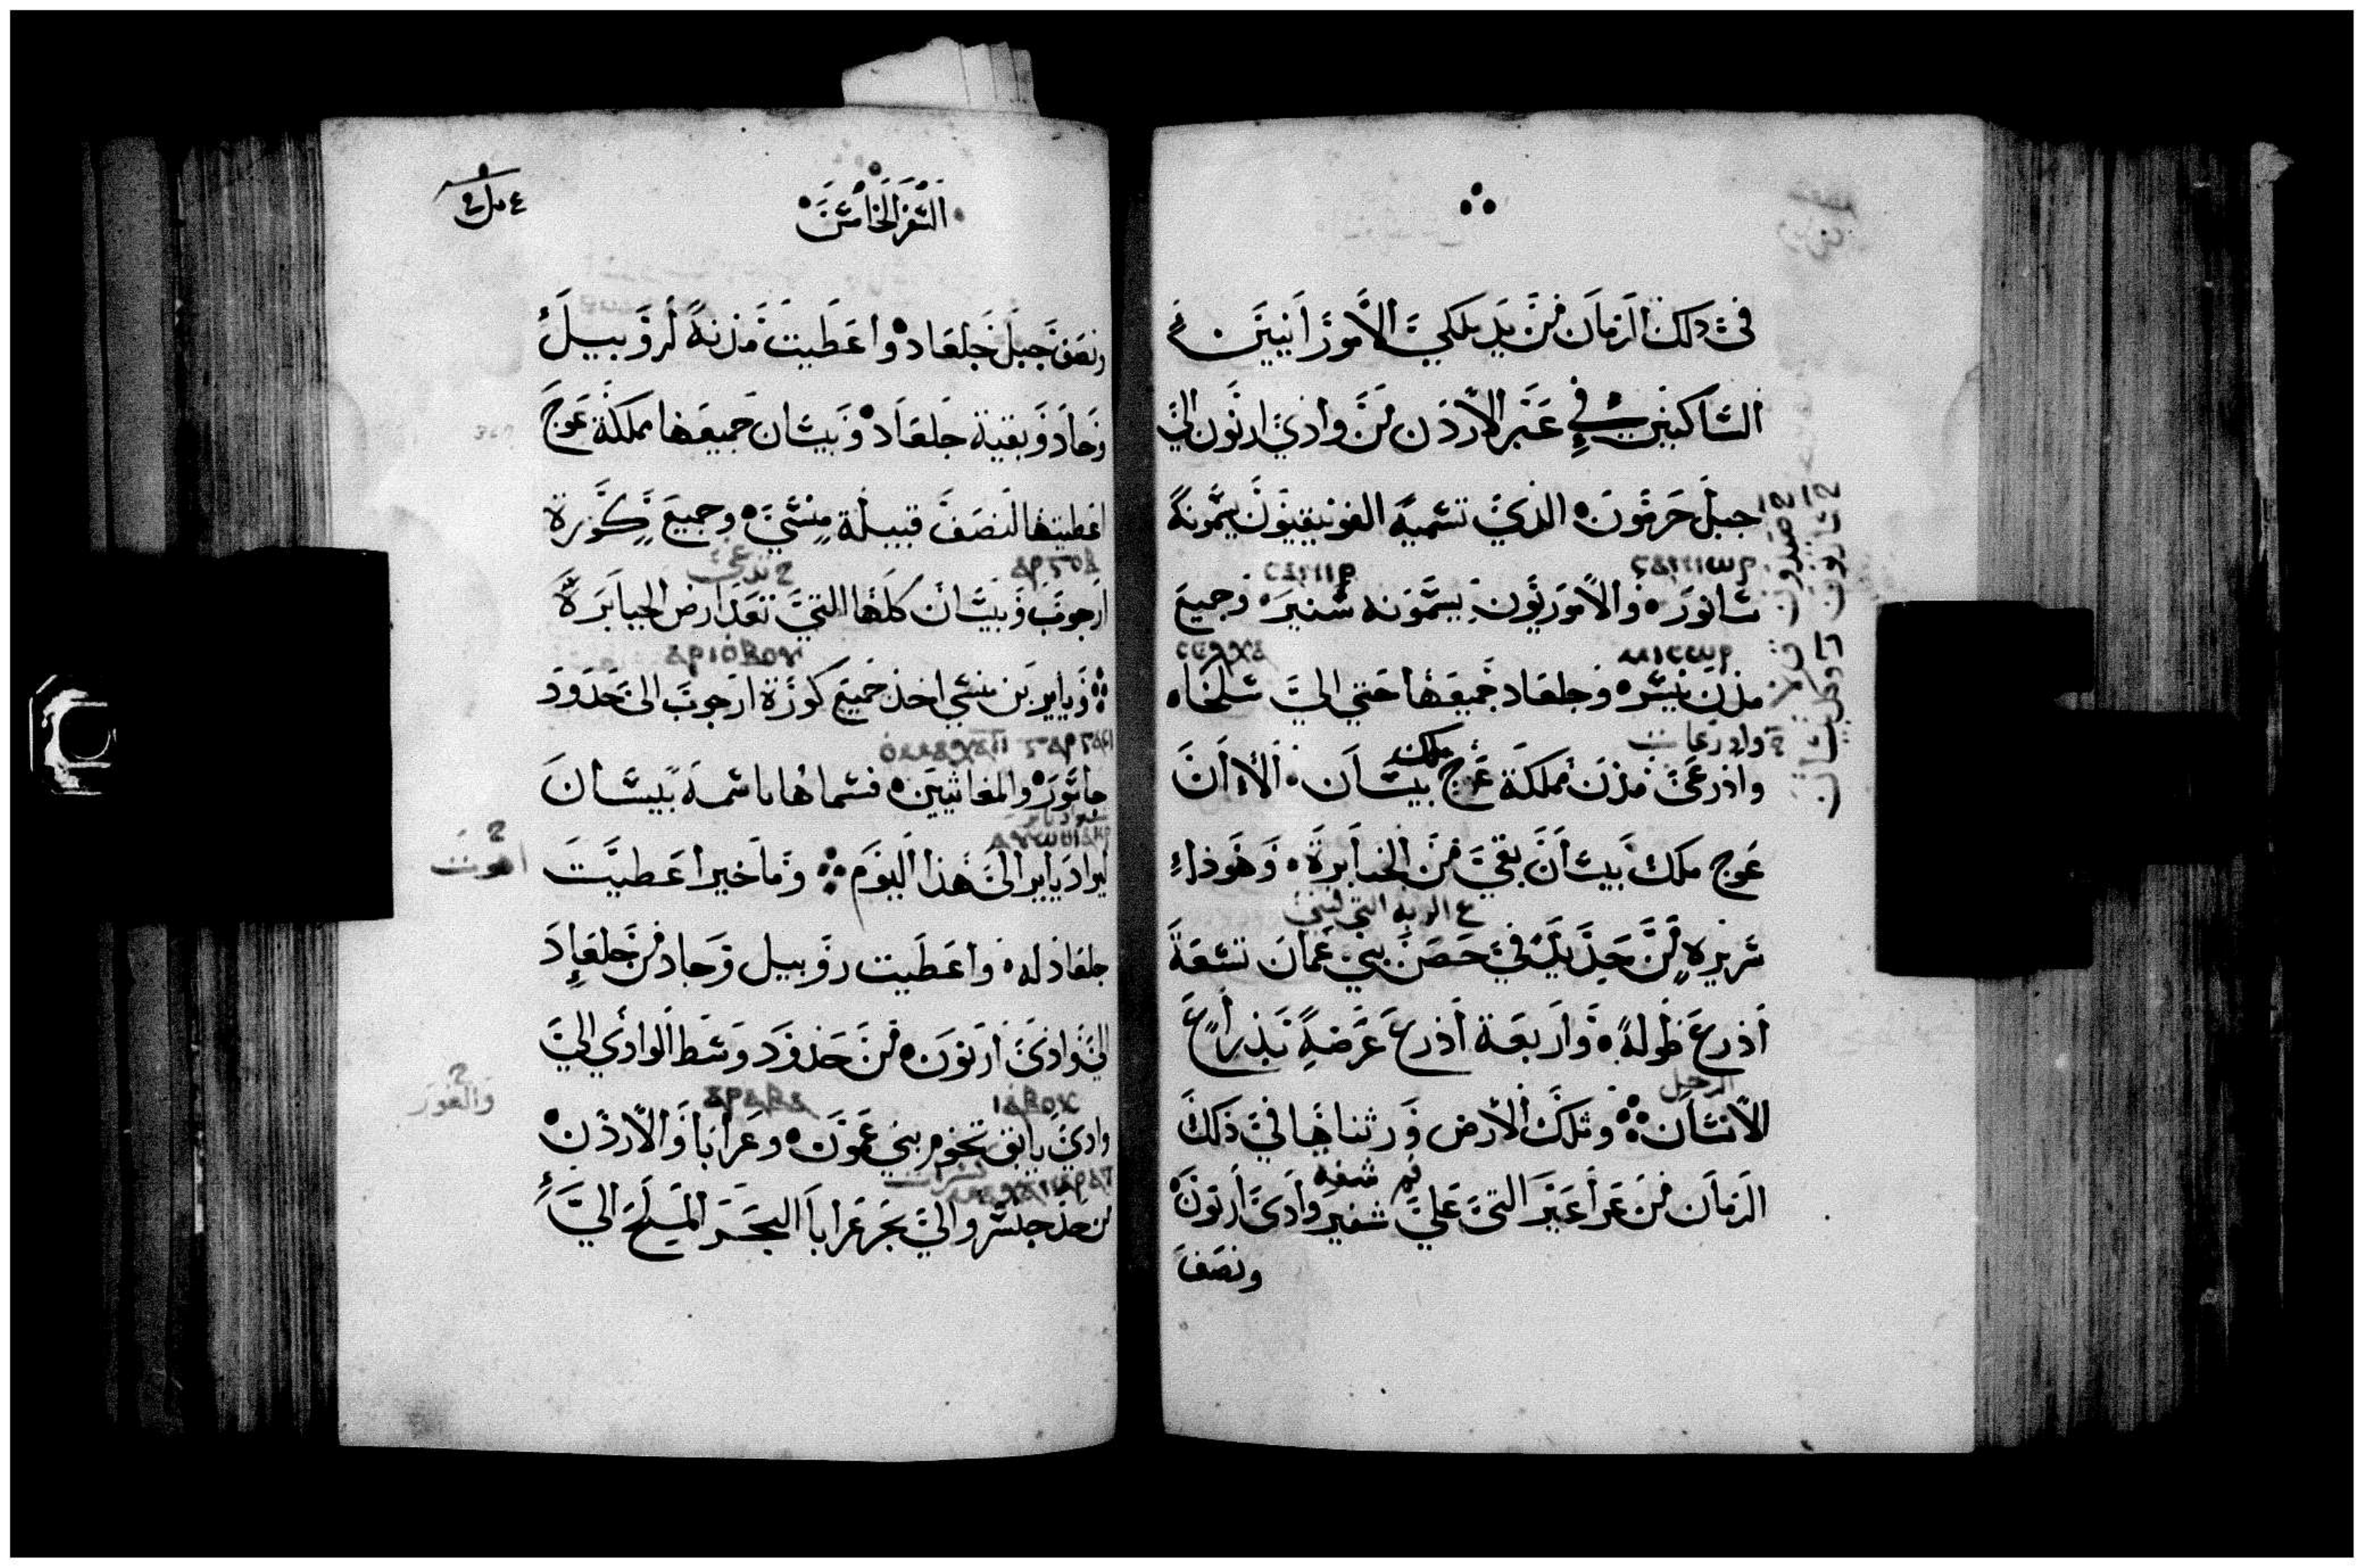 في ذلك الزمان من يد ملكي الاموزانيين
الساكنين في عبر الأردن من وادي ارنون الي
جبل حرمون الذي تسميه الفونيقيون يسمونه
سانور والاموريون يسمونه سنير وجميع
مدن ميسر وجلعاد جميعها حتي الي سلخاه
واذرعي مدن مملكة عوج بيسان الا ان
عوج ملك بيسان بقي من الجبابرة وهوذا
سريره من حديد في حصن بني عمان تسعة
أذرع طوله واربعة أذرع عرضه بذراع
الانسان وتلك الأرض ورثناها في ذلك
الزمان من عراعير التي علي شفير وادي أرنون
ونصف
السفر الخامس
ونصف جبل جلعاد واعطيت مدنه لروبيل
وجاد وبقية جلعاد وبيسان جميعها مملكة عوج
اعطيتها لنصف قبيلة منسي وجميع كورة
ارجوب وبيسان كلها التي تعد ارض الجبابرة
وياير بن منسي اخذ جميع كورة ارجوب الي حدود
جاسور والمغاثيين فسماها باسمه بيسان
ياير الي هذا اليوم وماخير اعطيت
جلعاد له واعطيت روبيل وجاد من جلعاد
الي وادي ارنون من حدود وسط الوادي الي
وادي يابق تخوم بني عمون وعرابا والأردن
من حد جنسر والي بحر عرابا البحر المليح الي